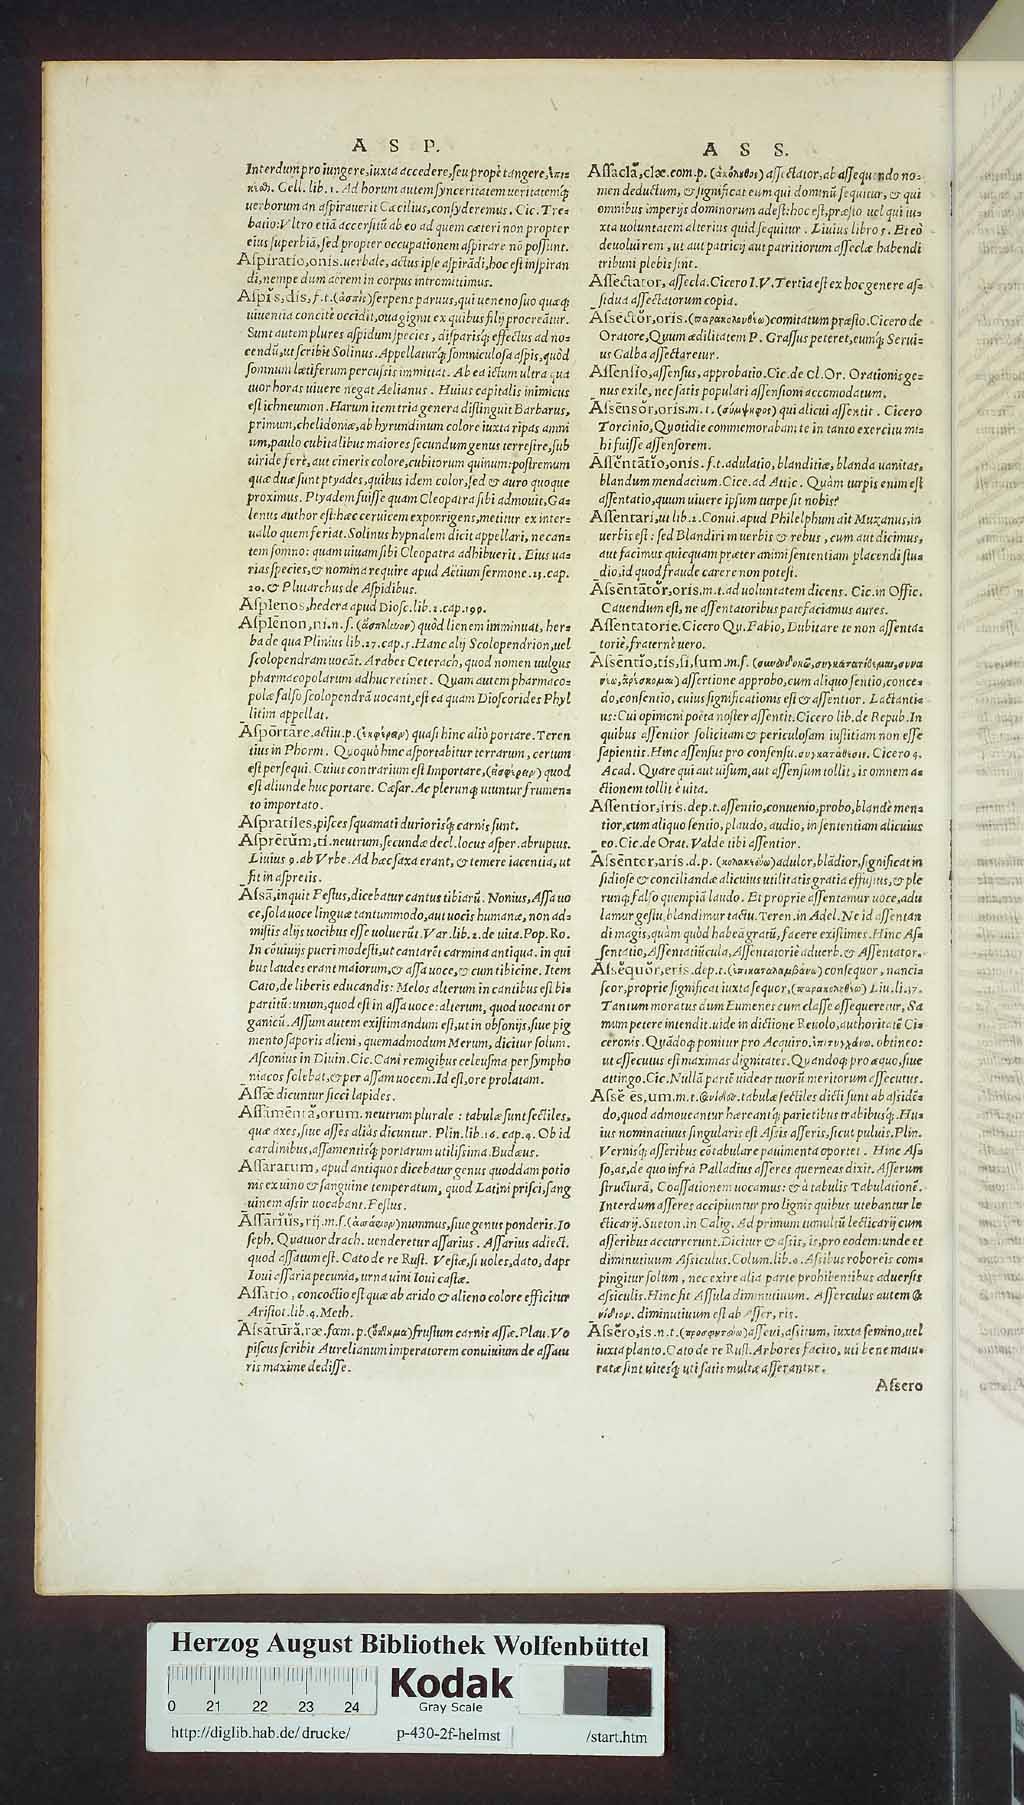 A S P.
Interdum pro iungere, iuxta accedere, seu propè tangere,
Cell. lib. 1. Ad horum autem synceritatem ueritatemq́;
uerborum an aspirauerit Cæcilius, consyderemus. Cic. Tre-
batio: Vltro etiā accersitū ab eo ad quem cæteri non propter
eius superbiā, sed propter occupationem aspirare nō possunt.
Aspiratio, onis. uerbale, actus ipse aspirādi, hoc est inspiran
di, nempe dum aërem in corpus intromittimus.
Aspis, dis, f. t. (ἀσπὶς) serpens paruus, qui ueneno suo quæq́;
uiuentia concitè occidit, oua gignit ex quibus filij procreātur.
Sunt autem plures aspidum species, disparisq́; effectus ad no-
cendū, ut scribit Solinus. Appellaturq́; somniculosa aspis, quòd
somnum lætiferum percussis immittat. Ab ea ictum ultra qua
tuor horas uiuere negat Aelianus. Huius capitalis inimicus
est ichneumon. Harum item tria genera distinguit Barbarus,
primum, chelidoniæ, ab hyrundinum colore iuxta ripas amni
um, paulo cubitalibus maiores secundum genus terrestre, sub
uiride ferè, aut cineris colore, cubitorum quinum: postremum
quæ duæ sunt ptyades, quibus idem color, sed & auro quoque
proximus. Ptyadem fuisse quam Cleopatra sibi admouit, Ga-
lenus author est: hæc ceruicem exporrigens, metitur ex inter-
uallo quem feriat. Solinus hypnalem dicit appellari, necan-
tem somno: quam uiuam sibi Cleopatra adhibuerit. Eius ua-
rias species, & nomina require apud Aetium sermone. 13. cap.
20. & Plutarchus de Aspidibus.
Asplenos, hedera apud Diosc. lib. 2. cap. 199.
Asplēnon, ni. n. s. (ἄσπληνον) quòd lienem imminuat, her-
ba de qua Plinius lib. 27. cap. 5. Hanc alij Scolopendrion, uel
scolopendram uocāt. Arabes Ceterach, quod nomen uulgus
pharmacopolarum adhuc retinet. Quam autem pharmaco-
polæ falso scolopendrā uocant, est ea quam Dioscorides Phyl
litim appellat.
Aspōrtāre. actiu. p. (ἐκφέρειν) quasi hinc aliò portare. Teren
tius in Phorm. Quoquò hinc asportabitur terrarum, certum
est persequi. Cuius contrarium est Importare, (εἰσφέρειν) quod
est aliunde huc portare. Cæsar. Ac plerunq; utuntur frumen-
to importato.
Aspratiles, pisces squamati duriorisq́; carnis sunt.
Asprētum, ti. neutrum, secundæ decl. locus asper. abruptus.
Liuius 9. ab Vrbe. Ad hæc saxa erant, & temere iacentia, ut
fit in aspretis.
Assā, inquit Festus, dicebatur cantus tibiarū. Nonius, Assa uo
ce, sola uoce linguæ tantummodo, aut uocis humanæ, non ad-
mistis alijs uocibus esse uoluerūt. Var. lib. 2. de uita. Pop. Ro.
In cōuiuijs pueri modesti, ut cantarēt carmina antiqua. in qui
bus laudes erant maiorum, & assa uoce, & cum tibicine. Item
Cato, de liberis educandis: Melos alterum in cantibus est bi-
partitū: unum, quod est in assa uoce: alterum, quod uocant or
ganicū. Assum autem existimandum est, ut in obsonijs, siue pig
mento saporis alieni, quemadmodum Merum, dicitur solum.
Asconius in Diuin. Cic. Cani remigibus celeusma per sympho
niacos solebat, & per assam uocem. Id est, ore prolatam.
Assæ dicuntur sicci lapides.
Assāmēntā, orum. neutrum plurale: tabulæ sunt sectiles,
quæ axes, siue asses aliàs dicuntur. Plin. lib. 16. cap. 4. Ob id
cardinibus, assamentisq́; portarum utilissima. Budæus.
Assaratum, apud antiquos dicebatur genus quoddam potio
nis ex uino & sanguine temperatum, quod Latini prisci, sang
uinem assir uocabant. Festus.
Assārius, rij. m. s. (ἀσσάριον) nummus, siue genus ponderis. Io
seph. Quatuor drach. uenderetur assarius. Assarius adiect.
quod assatum est. Cato de re Rust. Vestæ, si uoles, dato, daps
Ioui assaria pecunia, urna uini Ioui castæ.
Assatio, concoctio est quæ ab arido & alieno colore efficitur
Aristot. lib. 4. Meth.
Assātūrā, ræ. fœm. p. frustum carnis assæ. Plau. Vo
piscus scribit Aurelianum imperatorem conuiuium de assatu
ris maxime dedisse.
A S S.
Assaclā, clæ. com. p. (ἀκόλουθος) assectator, ab assequendo no-
men deductum, & significat eum qui dominū sequitur, & qui
omnibus imperijs dominorum adest: hoc est, præsto uel qui iu-
xta uoluntatem alterius quid sequitur. Liuius libro 5. Et eò
deuoluirem, ut aut patricij aut patritiorum asseclæ habendi
tribuni plebis sint.
Assectator, assecla. Cicero I. V. Tertia est ex hoc genere as-
sidua assectatorum copia.
Assector, oris. (παρακολουθέω) comitatum præsto. Cicero de
Oratore, Quum ædilitatem P. Grassus peteret, eumq́; Serui-
us Galba assectaretur.
Assensio, assensus, approbatio. Cic. de Cl. Or. Orationis ge-
nus exile, nec satis populari assensioni accomodatum.
Assēnsor, oris. m. t. (σύμψηφος) qui alicui assentit. Cicero
Torcinio, Quotidie commemorabam te in tanto exercitu mi-
hi fuisse assensorem.
Assēntātio, onis. f. t. adulatio, blanditiæ, blanda uanitas,
blandum mendacium. Cice. ad Attic. Quàm turpis enim est
assentatio, quum uiuere ipsum turpe sit nobis?
Assentari, ut lib. 2. Conui. apud Philelphum ait Muzanus, in
uerbis est: sed Blandiri in uerbis & rebus, cum aut dicimus,
aut facimus quicquam præter animi sententiam placendi stu-
dio, id quod fraude carere non potest.
Assēntātor, oris. m. t. ad uoluntatem dicens. Cic. in Offic.
Cauendum est, ne assentatoribus patefaciamus aures.
Assentatorie. Cicero Qu. Fabio, Dubitare te non assenta-
toriè, fraternè uero.
Assēntio, tis, si, sum. m. s. (συνευδοκῶ, συγκατατίθεμαι,
) assertione approbo, cum aliquo sentio, conce-
do, consentio, cuius significationis est & assentior. Lactanti-
us: Cui opinioni poëta noster assentit. Cicero lib. de Repub. In
quibus assentior solicitam & periculosam iustitiam non esse
sapientis. Hinc assensus pro consensu. συγκατάθεσις. Cicero 4.
Acad. Quare qui aut uisum, aut assensum tollit, is omnem a-
ctionem tollit è uita.
Assentior, iris. dep. t. assentio, conuenio, probo, blandè men-
tior, cum aliquo sentio, plaudo, audio, in sententiam alicuius
eo. Cic. de Orat. Valde tibi assentior.
Assēnter, aris. d. p. (κολακεύω) adulor, blādior, significat in
sidiose & conciliandæ alicuius utilitatis gratia effusius, & ple
runq; falso quempiā laudo. Et proprie assentamur uoce, adu
lamur gestu, blandimur tactu. Teren. in Adel. Ne id assentan
di magis, quàm quòd habeā gratū, facere existimes. Hinc As-
sentatio, Assentatiūcula, Assentatoriè aduerb. & Assentator.
Assēquor, eris. dep. t. (ἐπικαταλαμβάνω) consequor, nancis-
scor, proprie significat iuxta sequor, (παρακολουθέω) Liu. li. 37.
Tantum moratus dum Eumenes cum classe assequeretur, Sa
mum petere intendit. uide in dictione Reuolo, authoritatē Ci-
ceronis. Quādoq; ponitur pro Acquiro. ἐπιτυγχάνω. obtineo:
ut assecutus est maximas dignitates. Quandoq; pro æquo, siue
attingo. Cic. Nullā partē uidear tuorū meritorum assecutus.
Assē es, um. m. t. tabulæ sectiles dicti sunt ab assidē-
do, quod admoueantur hæreantq́; parietibus trabibusq́;. Hu-
ius nominatiuus singularis est Assis asseris, sicut puluis. Plin.
Vernisq́; asseribus cōtabulare pauimenta oportet. Hinc As-
so, as, de quo infrà Palladius asseres querneas dixit. Asserum
structurā, Coassationem uocamus: & à tabulis Tabulationē.
Interdum asseres accipiuntur pro lignis quibus utebantur le
cticarij. Sueton. in Calig. Ad primum tumultū lecticarij cum
asseribus accurrerunt. Dicitur & assis, is, pro eodem: unde et
diminutiuum Assiculus. Colum. lib. 6. Assibus roboreis com-
pingitur solum, nec exire alia parte prohibentibus aduersis
assiculis. Hinc fit Assula diminutiuum. Asserculus autem
diminutiuum est ab Asser, ris.
Assēro, is. n. t. assevi, assitum, iuxta semino, uel
iuxta planto. Cato de re Rust. Arbores facito, uti bene matu-
ratæ sint uitesq́; uti satis multæ asserantur.
Assero
Herzog August Bibliothek Wolfenbüttel
Kodak
Gray Scale
0 21 22 23 24
http://diglib.hab.de/drucke/ p-430-2f-helmst /start.htm